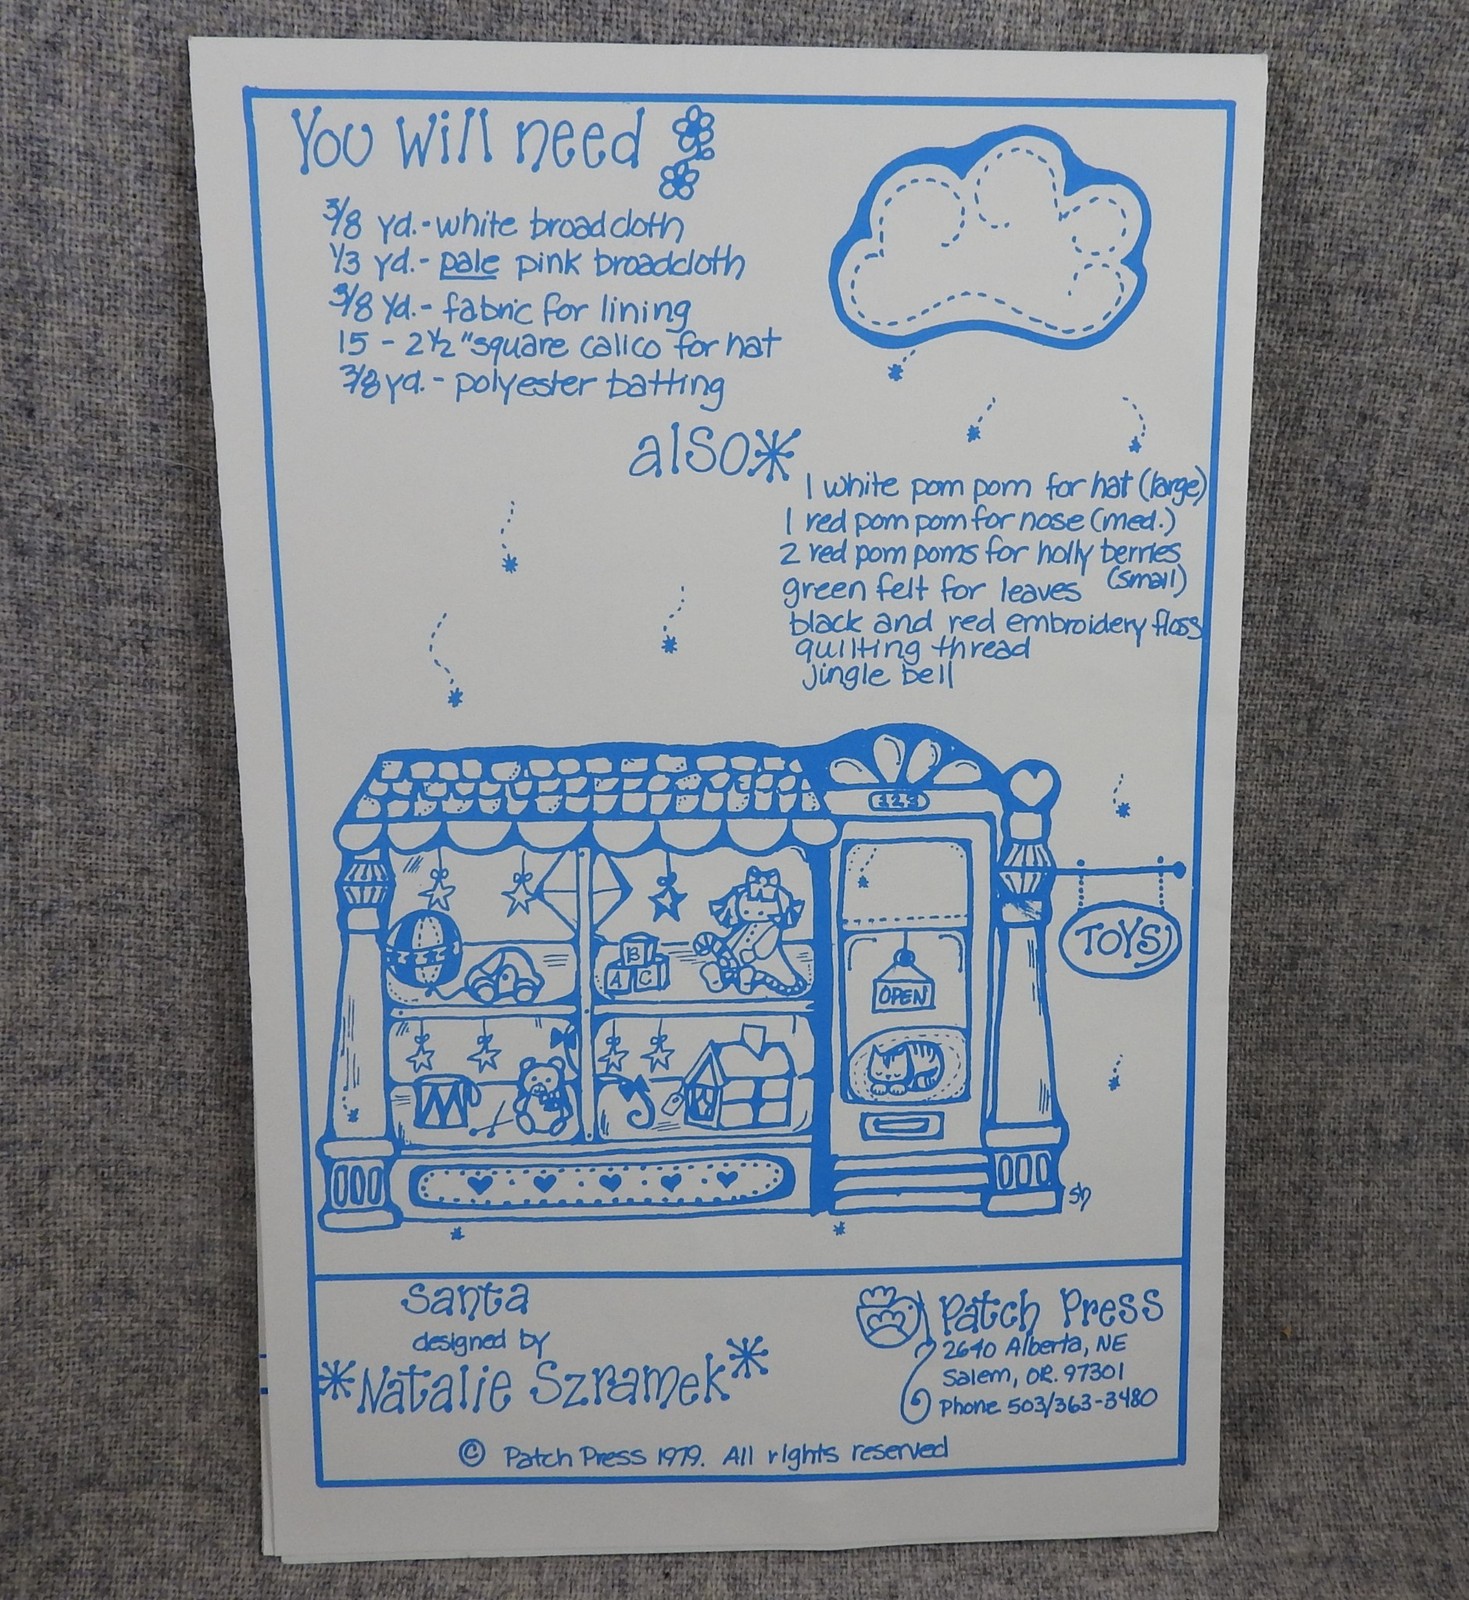 You will need
3/8 yd.-white broadcloth
1/3 yd.- pale pink broadcloth
3/8 Yd.- fabric for lining
15 - 2 1/2" square calico for hat
3/8 yd. - polyester batting
also*
1 white pom pom for hat (large)
1 red pom pom for nose (med.)
2 red pom poms for holly berries
(small)
green felt for leaves
black and red embroidery floss
quilting thread
jingle bell
123
TOYS
B
A C
OPEN
sh
Santa
designed by
*Natalie Szramek*
Patch Press
2640 Alberta, NE
Salem, OR. 97301
Phone 503/363-3480
© Patch Press 1979. All rights reserved